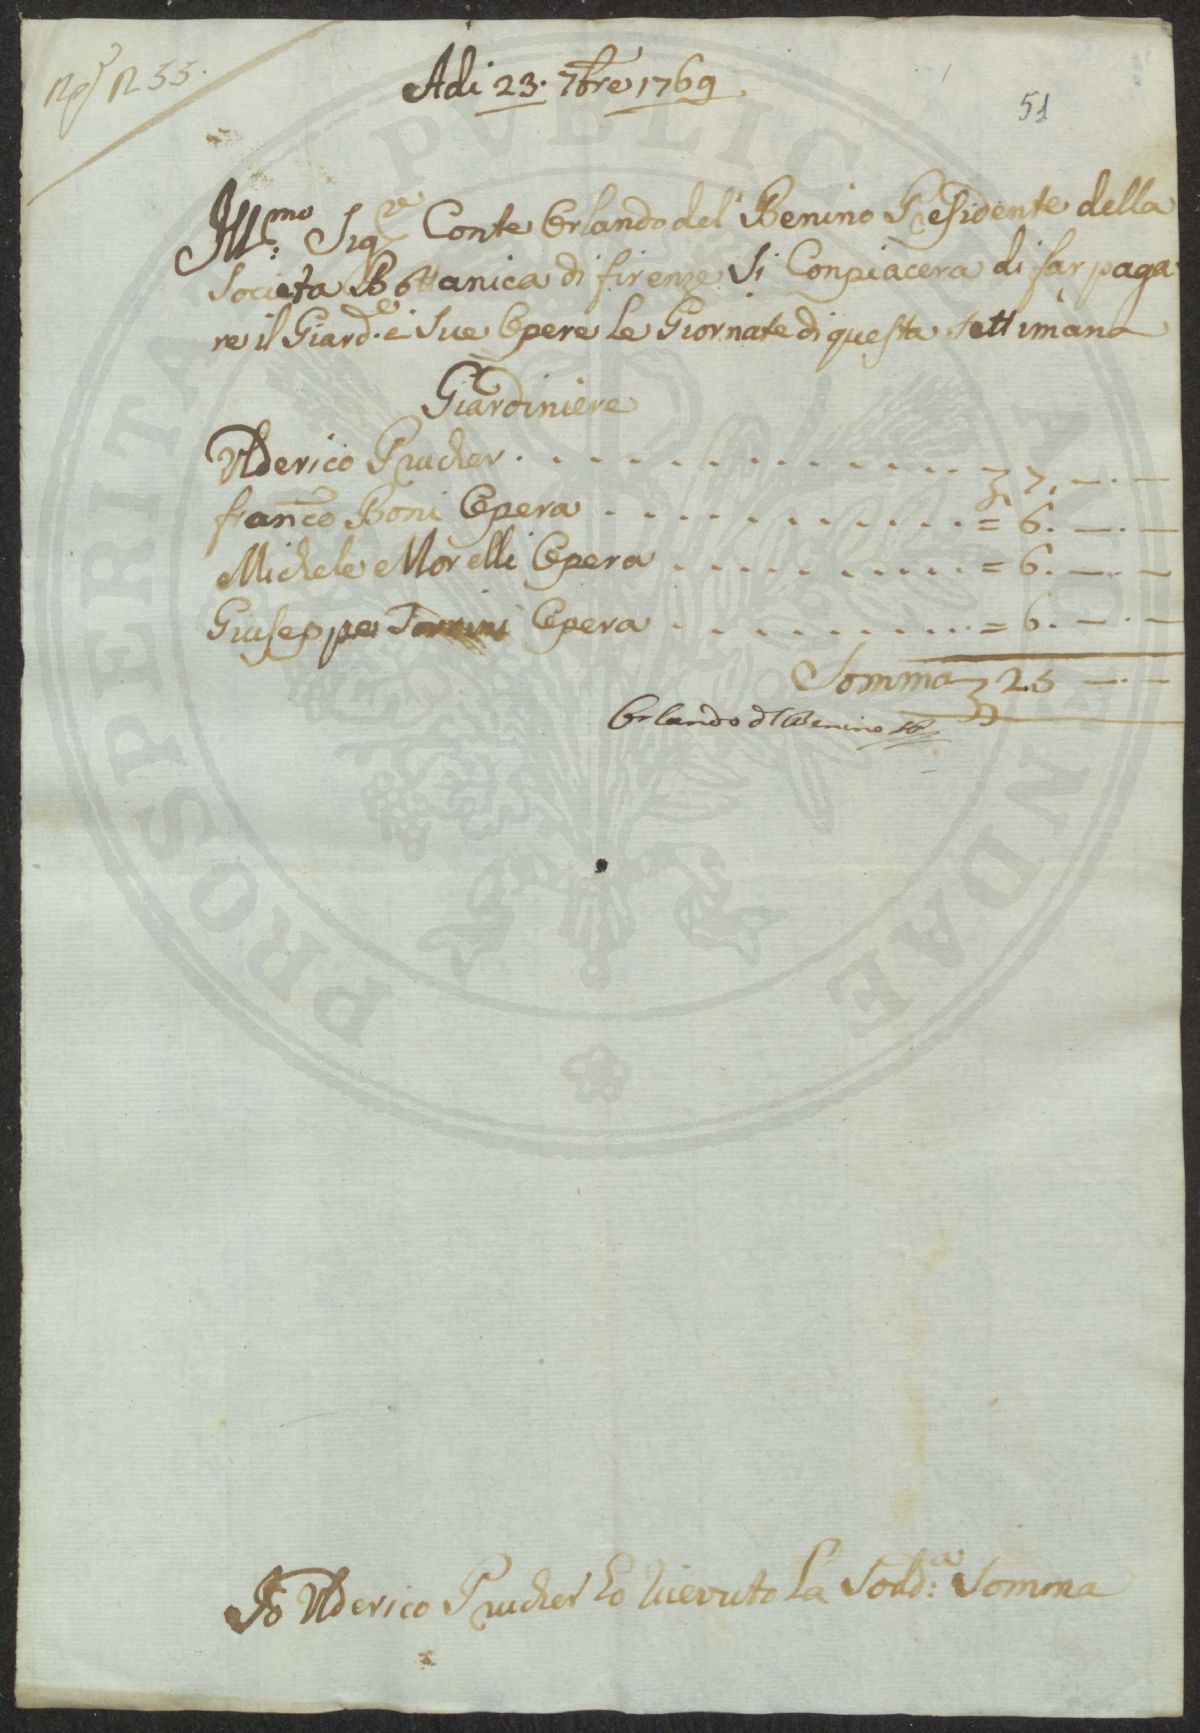 R 55.
Adi 23. 7bre 1769.
51
Ill:mo Sigre Conte Orlando del Benino Presidente della
Societa Bottanica di firenze Si Conpiacera di far paga
re il Giard.e e Sue Opere Le Giornate di questa Settimana
Giardiniere
Ulderico Prucher . . . . . . . . . . . . . . 7. — . —
franco Boni Opera . . . . . . . . . . = 6. — . —
Michele Morelli Opera . . . . . . . . = 6. — . —
Giuseppe Torrini Opera . . . . . . . . = 6. — . —
Somma 25 — . —
Orlando del Benino
Io Ulderico Prucher ho ricevuto La Sodd:a Somma
PROSPERITATI PVBLICAE AVGENDAE